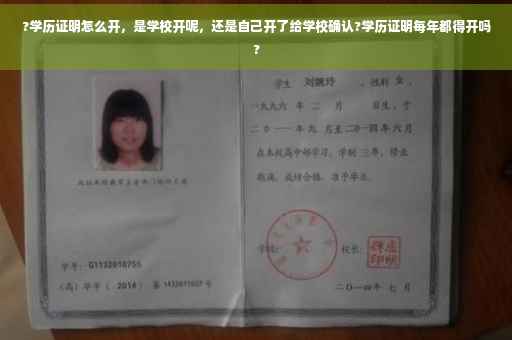 ?学历证明怎么开，是学校开呢，还是自己开了给学校确认?学历证明每年都得开吗
?
学生 刘婉玲 ，性别 女 ，
一九九六 年 二 月 日生，于
二〇一一年 九 月至 二〇一四年 六 月
在本校高中部学习，学制 三年，修业
期满，成绩合格，准予毕业。
学校: 校长:
学号: G1132010755
(高) 毕字 ( 2014 ) 第 1432011027 号
二〇一四年 七 月